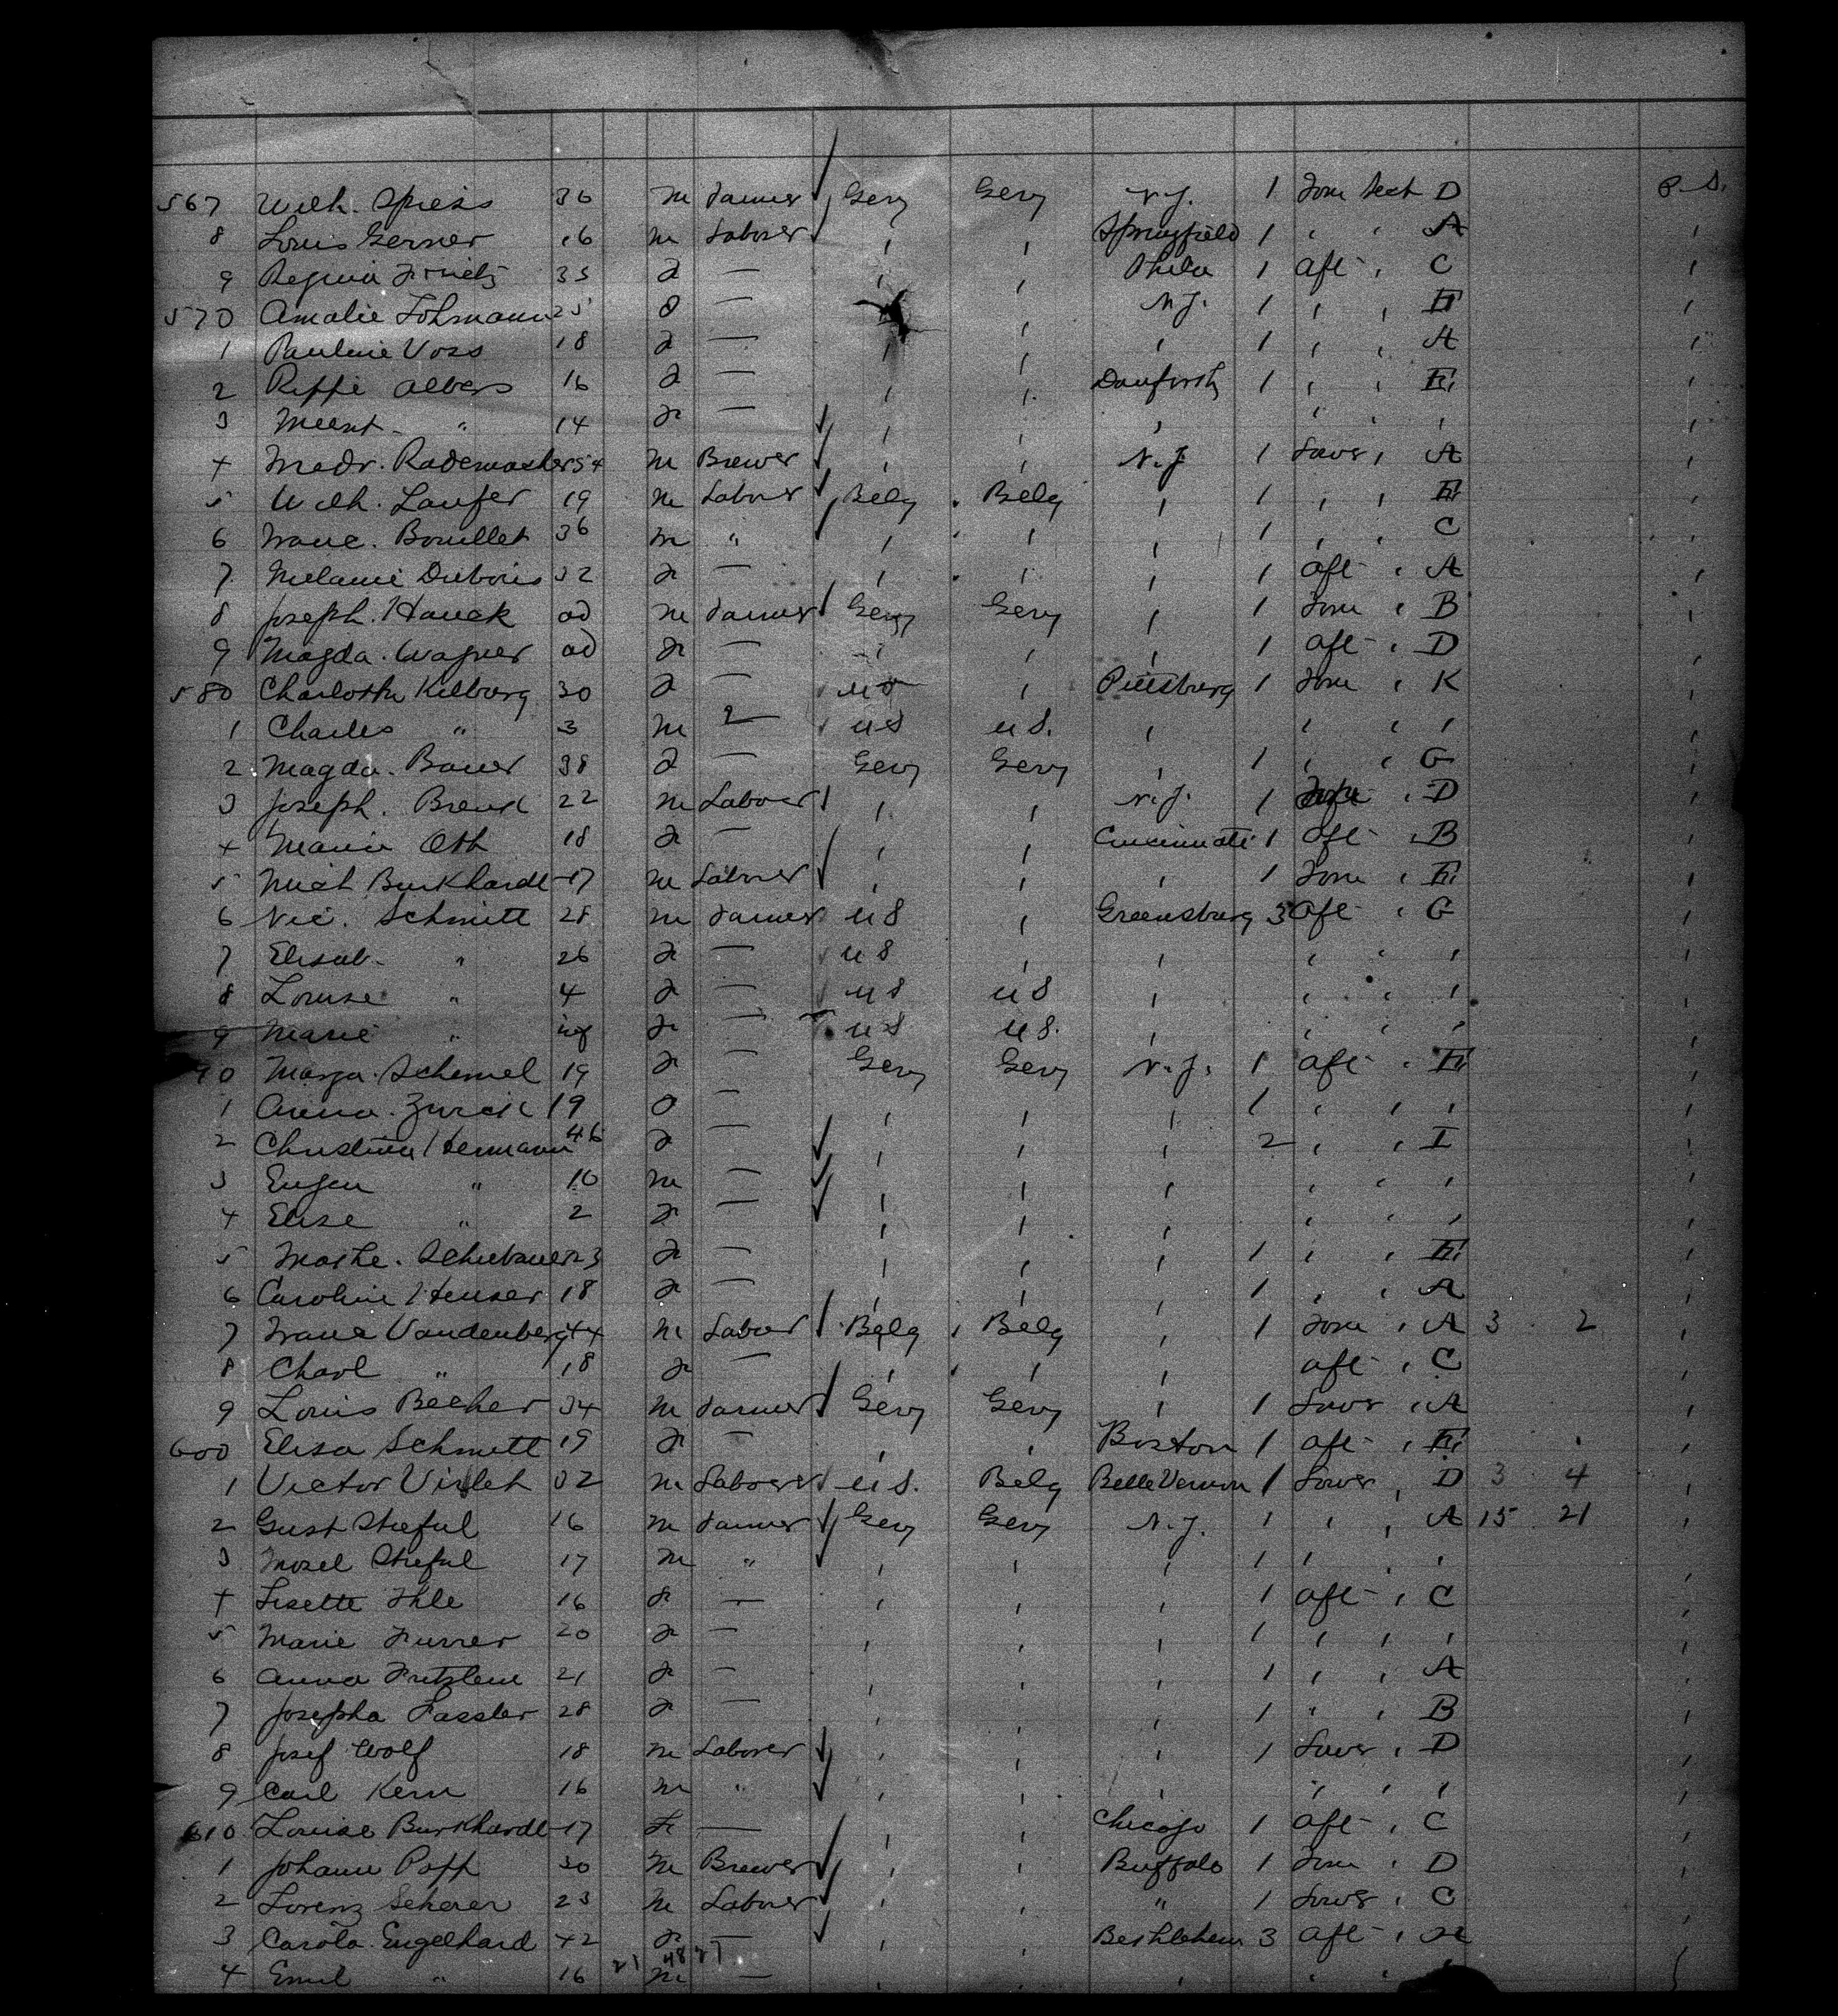 567 Wilh. Spiess 36 m Farmer Gery Gery N.J. 1 Forw Sect D P. D.
8 Louis Gerner 16 m Laborer , , Springfield 1 , , A ,
9 Regina 35 f — , , Phila 1 Aft , C ,
570 Amalie Fohmann 25 f — , N.J. 1 , , E ,
1 Pauline Voss 18 f — , , , 1 , , A ,
2 Albers 16 f — , , Danforth 1 , , E ,
3 Meent " 14 f — , , , , , , ,
4 Medr. Rademacher 54 m Brewer , , N.J. 1 Lower , A ,
5 Wilh. Laufer 19 m Laborer Belg Belg , 1 , , E ,
6 Franc. Bouillet 36 m " , , , 1 , , C ,
7 Melanie Dubois 32 f — , , , 1 Aft , A ,
8 Joseph. Hauck ad m Farmer Gery Gery , 1 Forw , B ,
9 Magda. Wagner ad f — , , , 1 Aft , D ,
580 Charlotte Kilburg 30 f — U S , Pittsburg 1 Forw , K ,
1 Charles " 3 m — U S U S. , , , , ,
2 Magda. Bauer 38 f — Gery Gery , 1 , , G ,
3 Joseph. 22 m Laborer , , N.J. 1 Forw , D ,
4 Marie Ott 18 f — , , Cincinnati 1 Aft , B ,
5 Mich Burkhardt 17 m Laborer , , , 1 Forw , E ,
6 Nic. Schmitt 28 m Farmer U S , Greensburg 3 Aft , G ,
7 Elisab. " 26 f — U S , , , , , ,
8 Louise " 4 f — U S U S , , , , ,
9 Marie " inf f — U S U S. , , , , ,
90 Marga. Schemel 19 f — Gery Gery N.J. 1 Aft , E ,
1 Anna. Zurick 19 f — , , , 1 , , , ,
2 Christina Hermann 46 f — , , , 2 , , I ,
3 Eugen " 10 m — , , , , , , ,
4 Elise " 2 f — , , , , , , ,
5 Mathe. Schubauer 23 f — , , , 1 , , E ,
6 Caroline Heuser 18 f — , , , 1 , , A ,
7 Franc Vandenberg 44 m Labor Belg Belg , 1 Forw , A 3 2 ,
8 Charl " 18 f — , , , Aft , C ,
9 Louis Becher 34 m Farmer Gery Gery , 1 Lower , A ,
600 Elisa Schmitt 19 f — , , Boston 1 Aft , E ,
1 Victor Virlet 32 m Laborer U.S. Belg Belle Vernon 1 Lower , D 3 4 ,
2 Gust Stieful 16 m Farmer Gery Gery N.J. 1 , , A 15 21 ,
3 Mosel Stieful 17 m " , , , 1 , , ,
4 Lisette Ihle 16 f — , , , 1 Aft , C ,
5 Marie Furrer 20 f — , , , 1 , , , ,
6 Anna 21 f — , , , 1 , , A ,
7 Josepha Fassler 28 f — , , , 1 " , B ,
8 Josef Wolf 18 m Laborer , , , 1 Lower , D ,
9 Carl Kern 16 m " , , , , , , ,
610 Louise Burkhardt 17 f — , , Chicago 1 Aft , C ,
1 Johann Popp 30 m Brewer , , Buffalo 1 Forw , D ,
2 Lorenz Scherer 23 m Laborer , , " 1 Lower , C ,
3 Carola. Engelhard 42 f — , , Bethlehem 3 Aft , H ,
4 Emil " 16 21 m 48 27 — , , , , ,